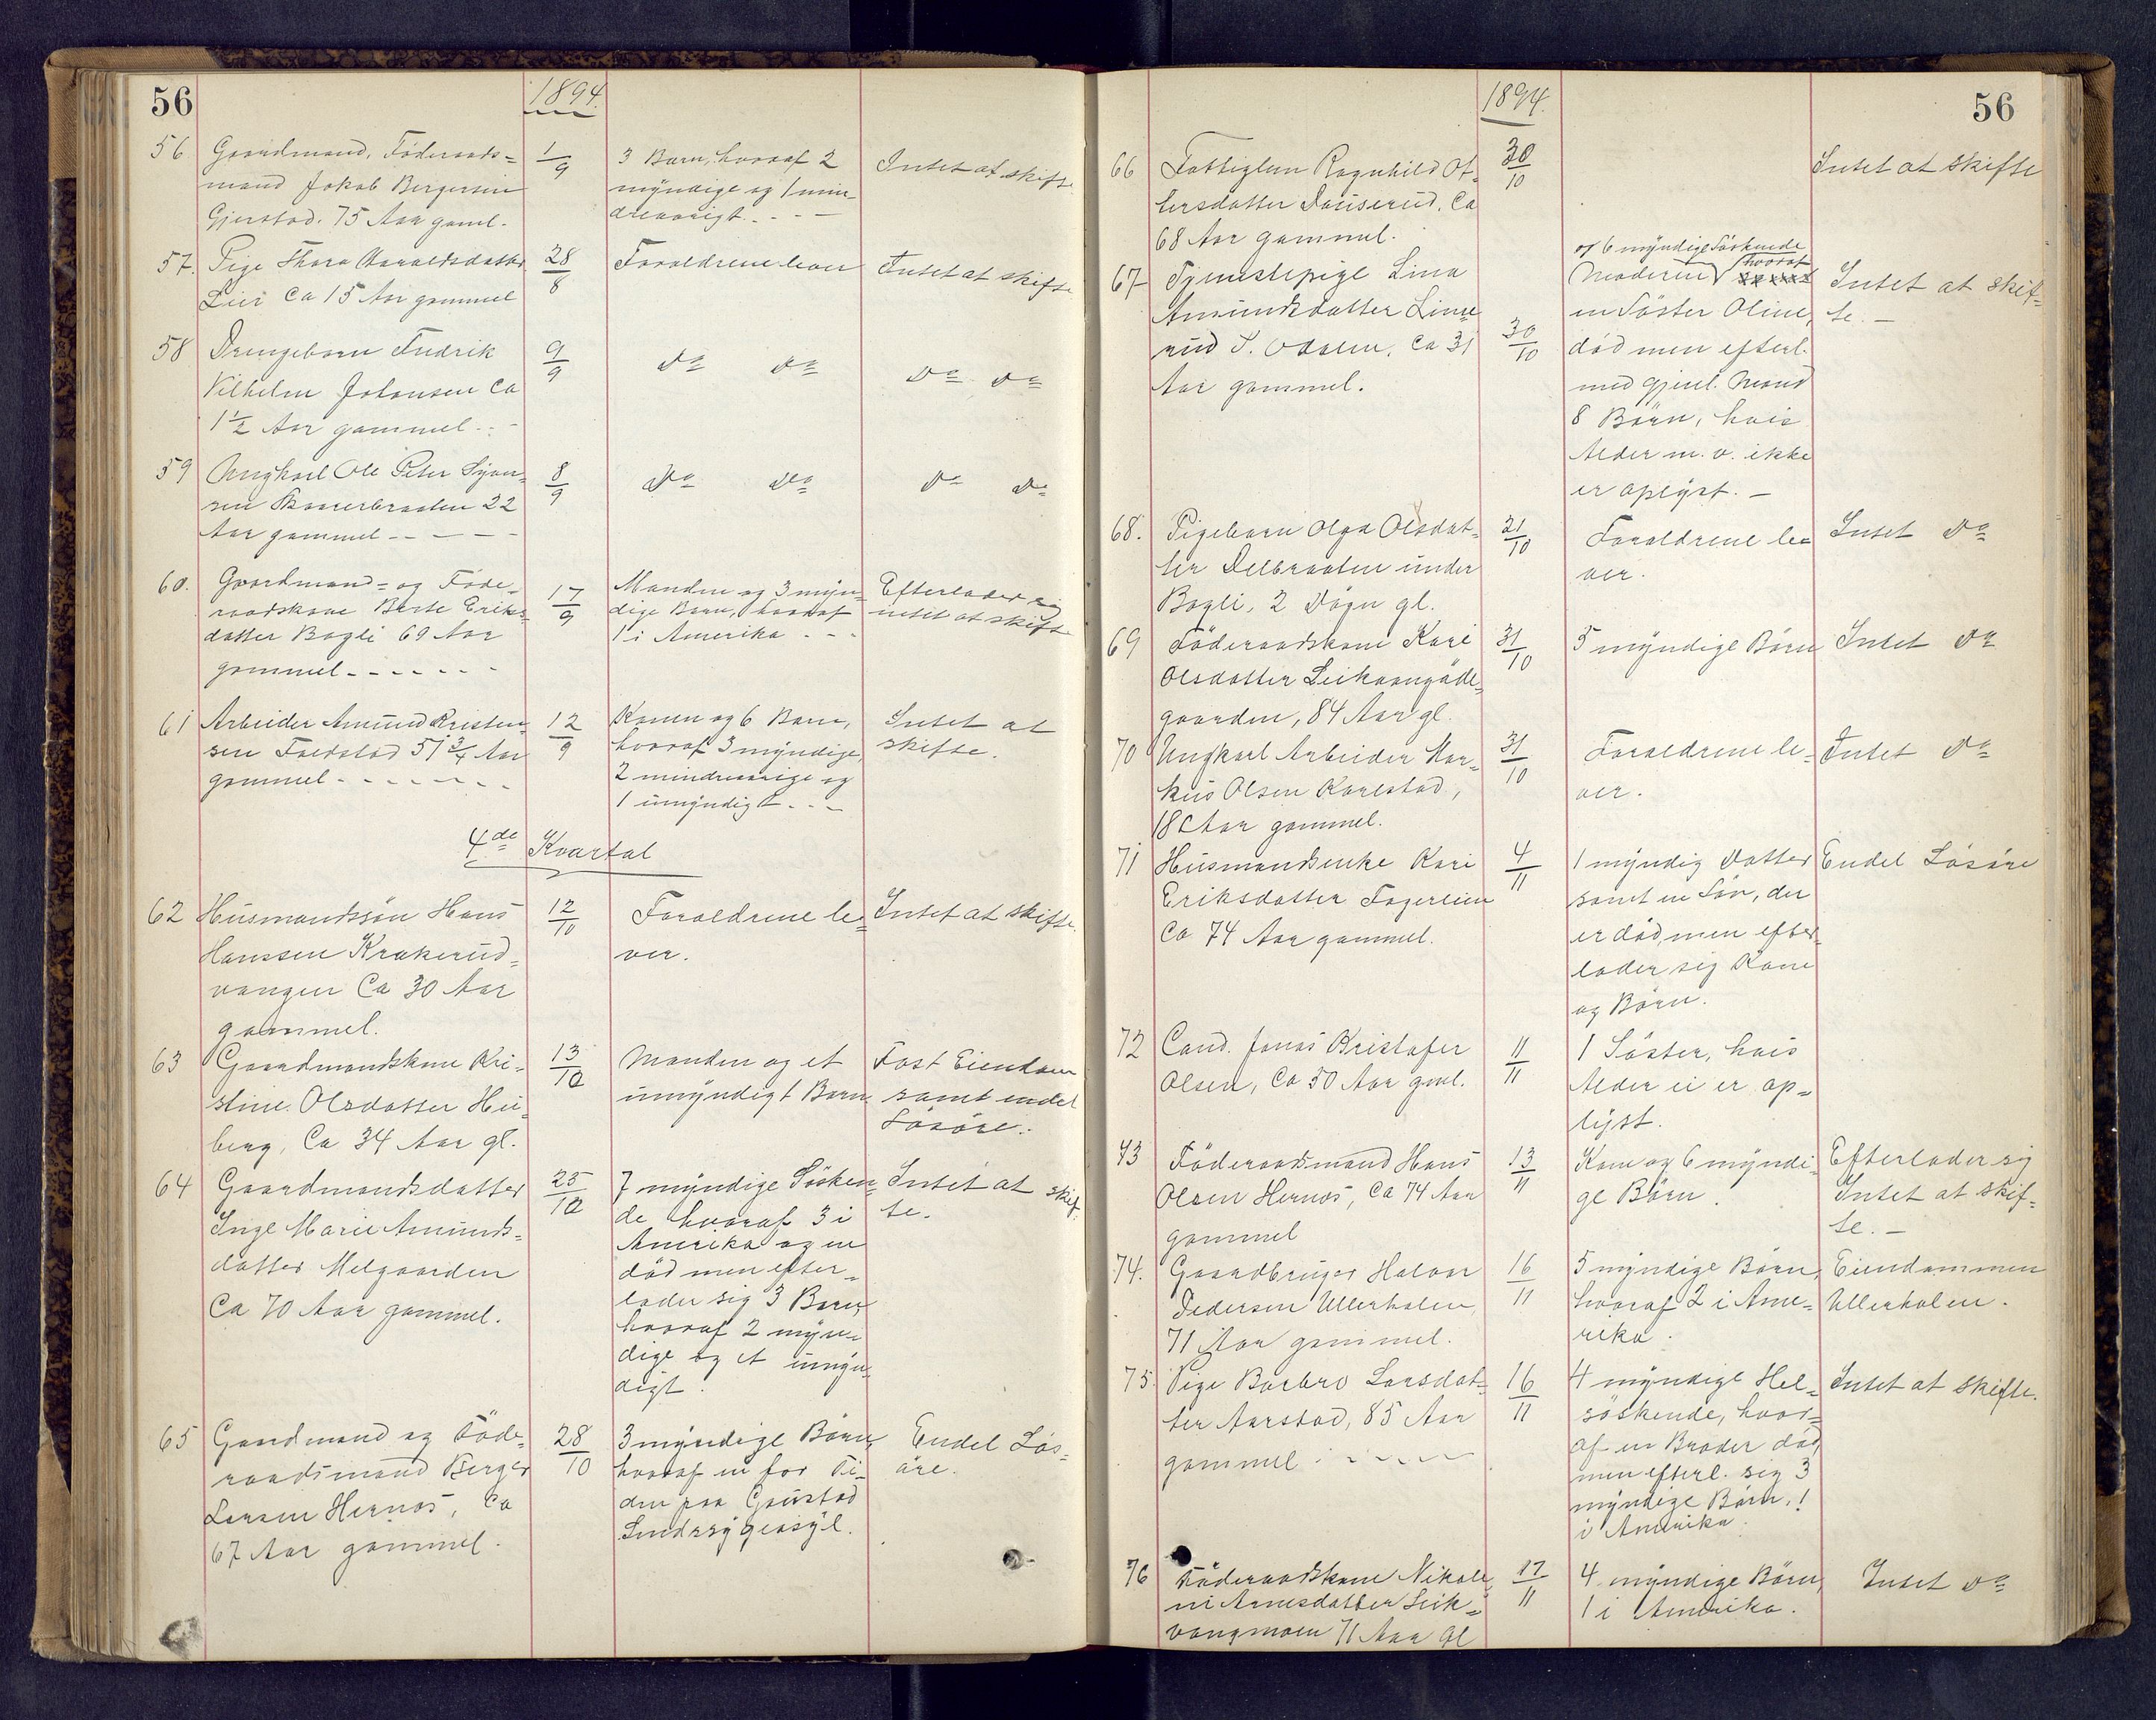 56
1894.
56 Gaardmand, Föderaads=
mand Jakob Bergersen
Gjerstad. 75 Aar gaml.
1/9
3 Barn, hvoraf 2
myndige og 1 min-
dreaarigt - - -
Intet at skifte
57. Pige Thora Haraldsdatter
Lier Ca 15 Aar gammel
28/8
Foraldrene lever
Intet at skifte
58 Drengebarn Fredrik
Vilhelm Johansen Ca
1 1/2 Aar gammel - -
9/9
do do
do do
59 Ungkarl Ole Peter Syver-
sen 22
Aar gammel - - - -
8/9
do do
do do
60. Gaardmand= og Föde-
raadskone Berte Eriks-
datter Bagli 69 Aar
gammel - - - - - -
17/9
Manden og 3 myn-
dige Barn, hvoraf
1 i Amerika - - -
Efterlader sig
intet at skifte
61 Arbeider Amund Kristen-
sen Foldstad 51 3/4 Aar
gammel - - - - - -
12/9
Konen og 6 Barn,
hvoraf 3 myndige,
2 mindreaarige og
1 umyndigt - - -
Intet at
skifte.
4de Kvartal
62 Husmandssön Hans
Hanssen Krakerud-
vangen Ca 30 Aar
gammel.
12/10
Foraldrene le-
ver.
Intet at skifte.
63 Gaardmandskone Kri-
stine Olsdatter Hei-
berg, Ca 34 Aar gl.
13/10
Manden og et
umyndigt Barn
Fast Eiendom
samt endel
Lösöre.
64 Gaardmandsdatter
Inge Marie Amunds-
datter Melgaarden
Ca 70 Aar gammel.
25/10
7 myndige Sösken-
de hvoraf 3 i
Amerika og en
död men efter-
lader sig 3 Barn,
hvoraf 2 myn-
dige og et umyn-
digt.
Intet at skif-
te.
65 Gaardmand og Föde-
raadsmand Berger
Larsen Hernæs, Ca
67 Aar gammel.
28/10
3 myndige Börn,
hvoraf en for Ti-
den paa Gaustad
Sindssygeasyl.
Endel Lös-
öre.
1894.
56
66 Fattiglem Ragnhild Ot-
tersdatter Dauserud, Ca
68 Aar gammel.
30/10
Intet at skifte
67 Tjenestepige Lina
Amundsdatter Linne-
rud S. Odalen, Ca 31
Aar gammel.
30/10
og 6 myndige Söskende
Moderen hvoraf
en Söster Oline,
död men efterl.
med gjenl. Mand
8 Börn, hvis
Alder m. v. ikke
er oplyst. -
Intet at skif-
te. -
68. Pigebarn Olga Olsdat-
ter Delbraaten under
Bagli, 2 Dögn gl.
21/10
Foraldrene le-
ver.
Intet do
69 Föderaadskone Kari
Olsdatter
gaarden, 84 Aar gl.
31/10
5 myndige Börn
Intet do
70 Ungkarl Arbeider Mar-
kus Olsen Karlstad,
18 Aar gammel.
31/10
Foraldrene le-
ver.
Intet do
71 Husmandsenke Kari
Eriksdatter Fagerlien
Ca 74 Aar gammel.
4/11
1 myndig Datter
samt en Sön, der
er död, men efter-
lader sig Kone
og Börn.
Endel Lösöre
72 Cand. Jonas Kristofer
Olsen, Ca 50 Aar gml.
11/11
1 Söster, hvis
Alder ei er op-
lyst.
73 Föderaadsmand Hans
Olsen Hernæs, Ca 74 Aar
gammel
13/11
Kone og 6 myndi-
ge Börn.
Efterlader sig
Intet at skif-
te. -
74. Gaardbruger Halvor
Pedersen Ullerhalen,
71 Aar gammel.
16/11
5 myndige Börn,
hvoraf 2 i Ame-
rika.
Eiendommen
Ullerhalen.
75. Pige Barbro Larsdat-
ter Aarstad, 85 Aar
gammel - - - -
16/11
4 myndige Hel-
söskende, hvor-
af en Broder död,
men efterl. sig 3
myndige Börn, 1
i Amerika.
Intet at skifte.
76 Föderaadskone Nikoli-
ne Arnesdatter Leik-
vangmoen 71 Aar gl
17/11
4 myndige Börn,
1 i Amerika.
Intet do